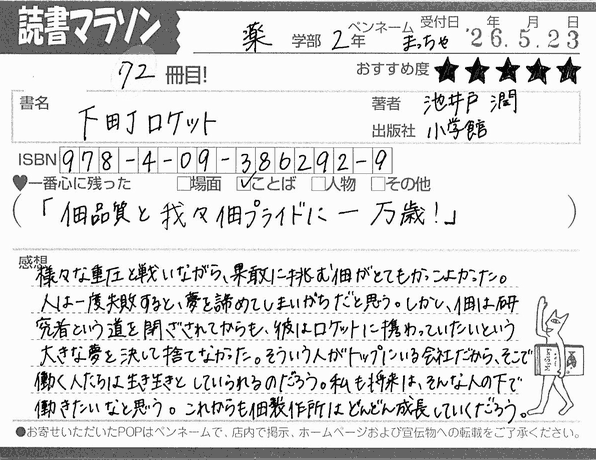 読書マラソン
薬 学部 2年 ペンネーム まっちゃ 受付日 '26年.5月.23日
72 冊目! おすすめ度 ★★★★★
書名 下町ロケット
著者 池井戸 潤
出版社 小学館
ISBN 978-4-09-386292-9
♥一番心に残った □場面 ☑ことば □人物 □その他
(「佃品質と我々佃プライドに一万歳!」)
感想
様々な重圧と戦いながら、果敢に挑む佃がとてもかっこよかった。
人は一度失敗すると、夢を諦めてしまいがちだと思う。しかし、佃は研
究者という道を閉ざされてからも、彼はロケットに携わっていたいという
大きな夢を決して捨てなかった。そういう人がトップにいる会社だから、そこで
働く人たちは生き生きとしていられるのだろう。私も将来は、そんな人の下で
働きたいなと思う。これからも佃製作所はどんどん成長していくだろう。
●お寄せいただいたPOPはペンネームで、店内で掲示、ホームページおよび宣伝物への転載をご了承ください。